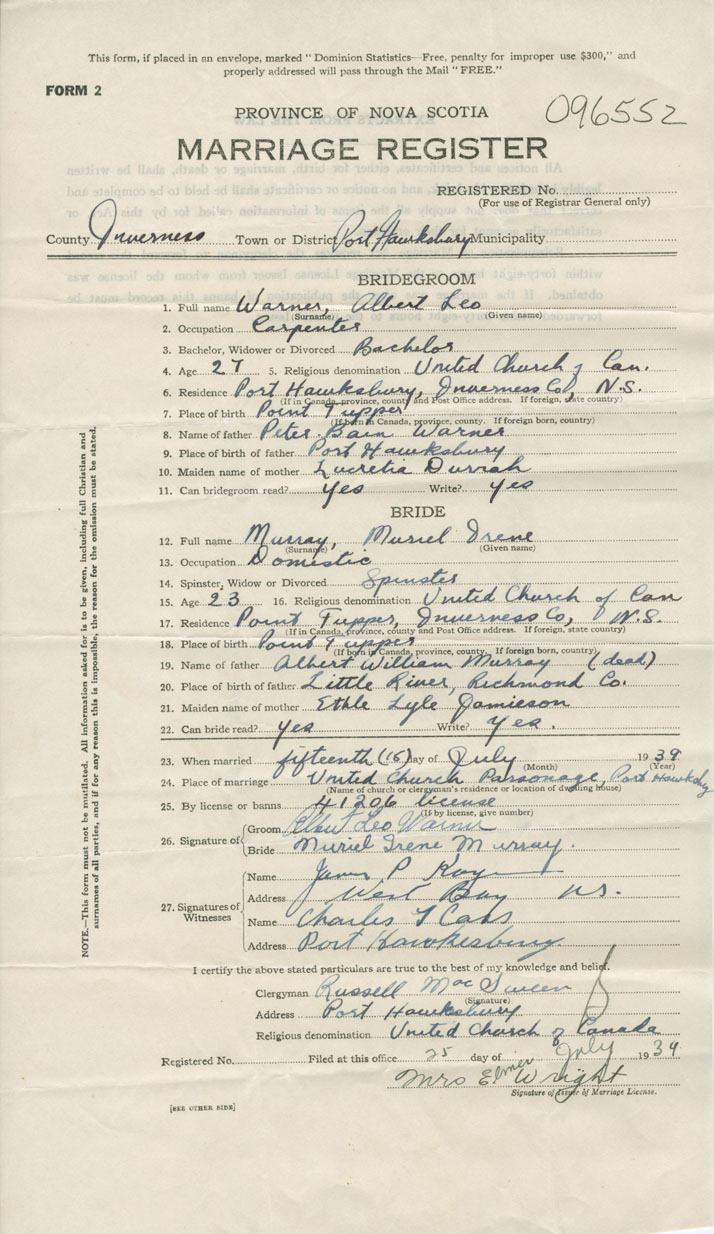 This form, if placed in an envelope, marked "Dominion Statistics—Free, penalty for improper use $300," and
properly addressed will pass through the Mail "FREE."
FORM 2
PROVINCE OF NOVA SCOTIA
096552
MARRIAGE REGISTER
REGISTERED No.
(For use of Registrar General only)
County Inverness Town or District Port Hawksbury Municipality
BRIDEGROOM
1. Full name Warner, Albert Leo
(Surname) (Given name)
2. Occupation Carpenter
3. Bachelor, Widower or Divorced Bachelor
4. Age 27 5. Religious denomination United Church of Can.
6. Residence Port Hawksbury, Inverness Co, N.S.
(If in Canada, province, county and Post Office address. If foreign, state country)
7. Place of birth Point Tupper
(If born in Canada, province, county. If foreign born, country)
8. Name of father Peter Bain Warner
9. Place of birth of father Port Hawksbury
10. Maiden name of mother Lucretia Durrah
11. Can bridegroom read? yes Write? yes
BRIDE
12. Full name Murray, Muriel Irene
(Surname) (Given name)
13. Occupation Domestic
14. Spinster, Widow or Divorced Spinster
15. Age 23 16. Religious denomination United Church of Can
17. Residence Point Tupper, Inverness Co, N.S.
(If in Canada, province, county and Post Office address. If foreign, state country)
18. Place of birth Point Tupper
(If born in Canada, province, county. If foreign born, country)
19. Name of father Albert William Murray (dead)
20. Place of birth of father Little River, Richmond Co.
21. Maiden name of mother Ethle Lyle Jamieson
22. Can bride read? yes Write? yes.
23. When married fifteenth (15) day of July 1939
(Month) (Year)
24. Place of marriage United Church Parsonage, Port Hawksby
(Name of church or clergyman's residence or location of dwelling house)
25. By license or banns 41206 license
(If by license, give number)
26. Signature of
Groom Albert Leo Warner
Bride Muriel Irene Murray.
27. Signatures of Witnesses
Name James P Kay
Address West Bay NS.
Name Charles
Address Port Hawkesbury
I certify the above stated particulars are true to the best of my knowledge and belief.
Clergyman Russell MacSween
(Signature)
Address Port Hawksbury
Religious denomination United Church of Canada
Registered No. Filed at this office 25 day of July 1939
Mrs Elmer Wright
Signature of Issuer of Marriage License.
[SEE OTHER SIDE]
NOTE.—This form must not be mutilated. All information asked for is to be given, including full Christian and
surnames of all parties, and if for any reason this is impossible, the reason for the omission must be stated.